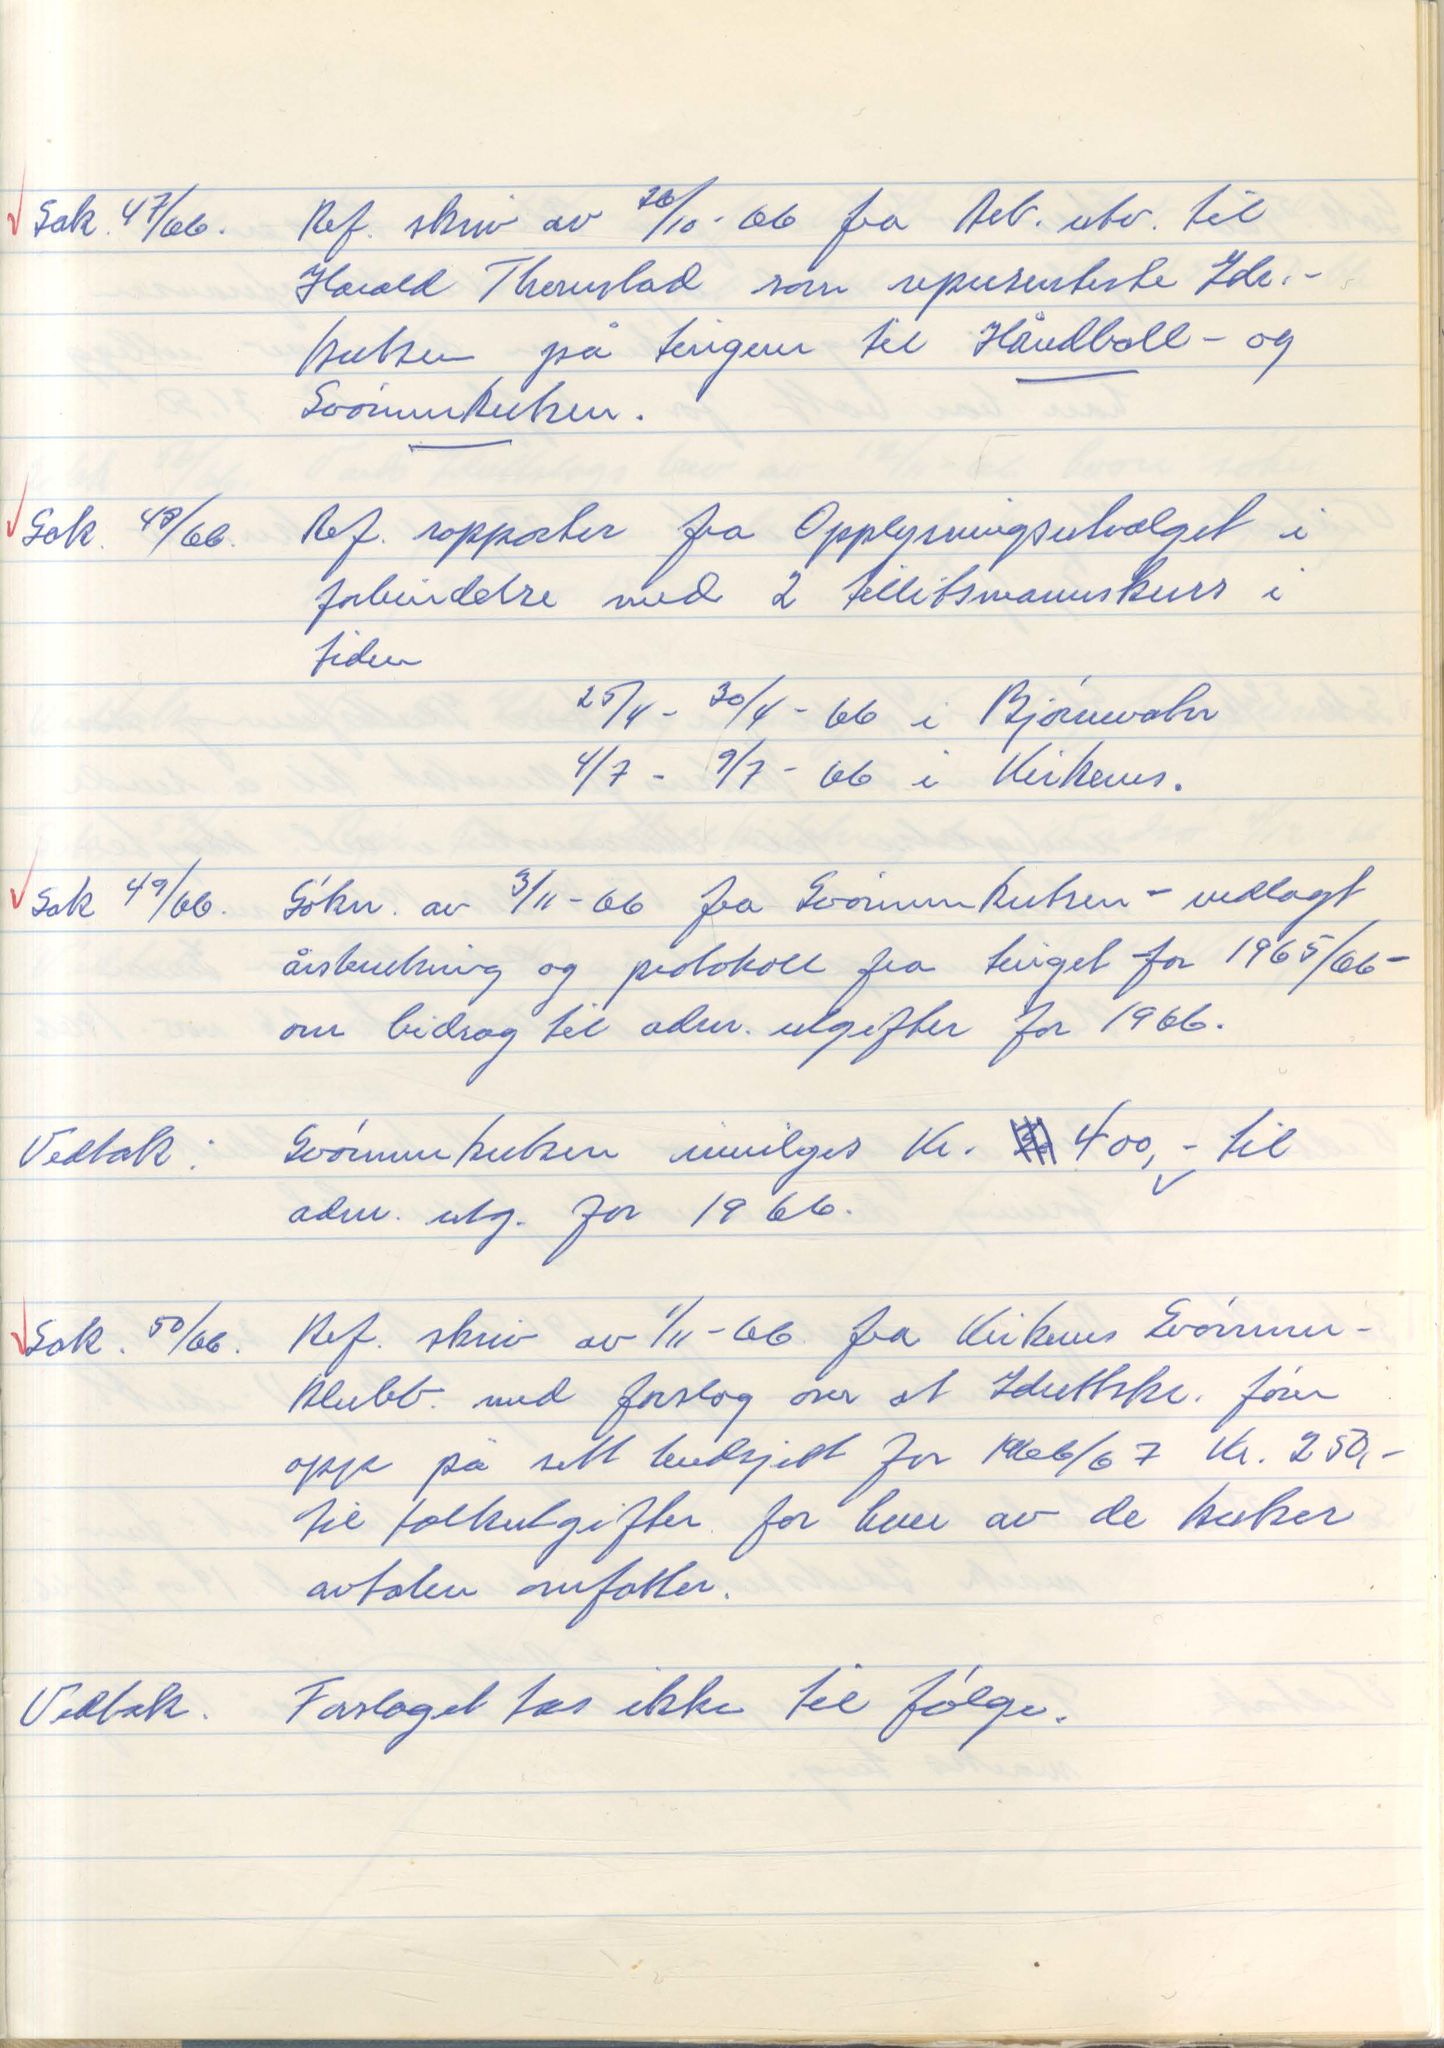 Sak. 47/66. Ref. skriv av 26/10-66 fra Arb. utv. til
Harald Thornstad som representerte Idr.-
kretsen på tingene til Håndball- og
Svømmekretsen.
Sak. 48/66. Ref. rapporter fra Opplysningsutvalget i
forbindelse med 2 tillitsmannskurs i
tiden
25/4 - 30/4 - 66 i Bjørnevatn
4/7 - 9/7 - 66 i Kirkenes.
Sak 49/66. Søkn. av 3/11-66 fra Svømmekretsen - vedlagt
årsberetning og protokoll fra tinget for 1965/66 -
om bidrag til adm. utgifter for 1966.
Vedtak: Svømmekretsen innvilges Kr. 400,- til
adm. utg. for 1966.
Sak. 50/66. Ref. skriv av 1/11-66 fra Kirkenes Svømme-
klubb med forslag over at Idrettskr. fører
opp på sitt budsjett for 1966/67 Kr. 250,-
til tolkutgifter for hver av de kretser
avtalen omfatter.
Vedtak. Forslaget tas ikke til følge.